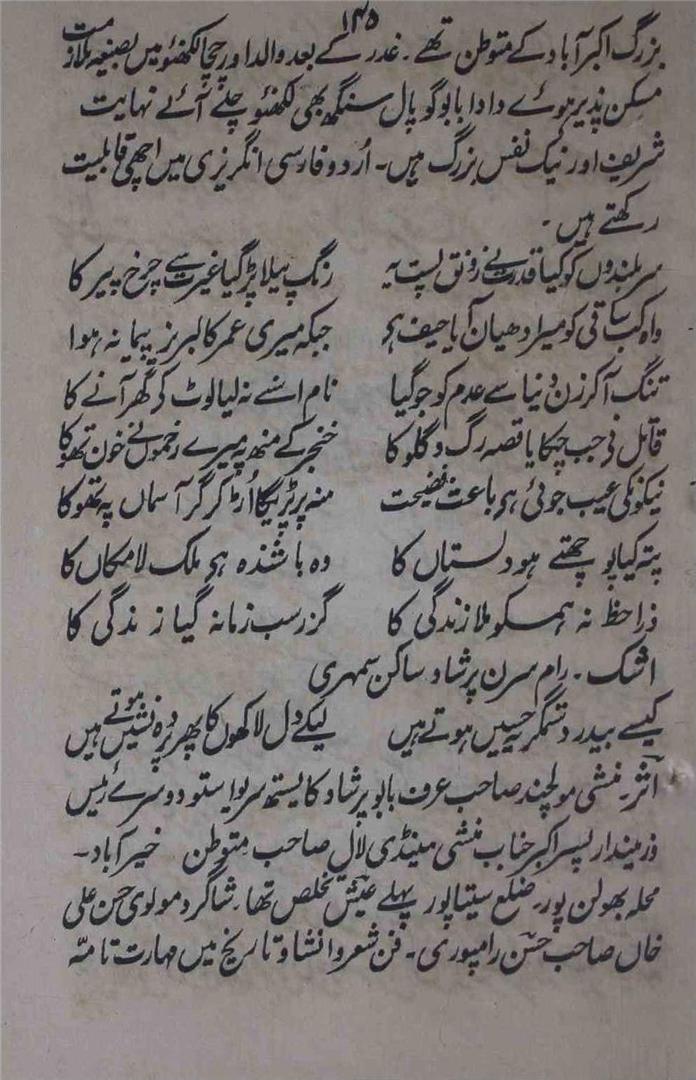 ۱۴۵
بزرگ اکبرآباد کے متوطن تھے۔ غدر کے بعد والد اور چچا لکھنؤ میں بصیغہ ملازمت
مسکن پذیر ہوئے دادا بابو گوپال سنگھ بھی لکھنؤ چلے آئے نہایت
شریف اور نیک نفس بزرگ ہیں۔ اُردو فارسی انگریزی میں اچھی قابلیت
رکھتے ہیں۔
سربلندوں کو کیا قدرت نے رونق پست یہ رنگ پیلا پڑگیا غیرت سے چرخ پیر کا
واہ کب ساقی کو میرا دھیان آیا حیف ہے جبکہ میری عمر کا لبریز پیمانہ ہوا
تنگ آکر زن دنیا سے عدم کو جو گیا نام اسنے نہ لیا لوٹ کے گھر آنے کا
قاتل نے جب چکایا قصہ رگ و گلو کا خنجر کے منھ پہ میرے زخموں نے خون تھوکا
نیکونکی عیب جوئی ہے باعث فضیحت منہ پر پڑیگا اُڑ کر گر آسماں پہ تھوکا
پتہ کیا پوچھتے ہو دلستاں کا وہ باشندہ ہے ملک لامکاں کا
ذرا حظ نہ ہمسکو ملا زندگی کا گزر سب زمانہ گیا زندگی کا
اشک۔ رام سرن پرشاد ساکن سمہری
کیسے بیدرد ستمگر یہ حسیں ہوتے ہیں لیکے دل لاکھوں کا پھر پردہ نشیں ہوتے ہیں
آثر۔ منشی مولچند صاحب عرف بابو پرشاد کایستھ سریواستو دوسرے رئیس
وزمیندار پسر اکبر جناب منشی مینڈی لال صاحب متوطن خیرآباد۔
محلہ بھولن پور۔ ضلع سیتاپور پہلے عیش تخلص تھا۔ شاگرد مولوی حسن علی
خاں صاحب حسن رامپوری۔ فن شعر و انشا و تاریخ میں مہارت تامہ